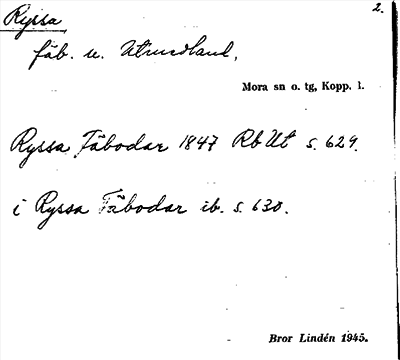 Ryssa 2.
fäb. u. Utmedland,
Mora sn o. tg, Kopp. l.
Ryssa Fäbodar 1847 Rb Ut s. 629.
i Ryssa Fäbodar ib. s. 630.
Bror Lindén 1945.